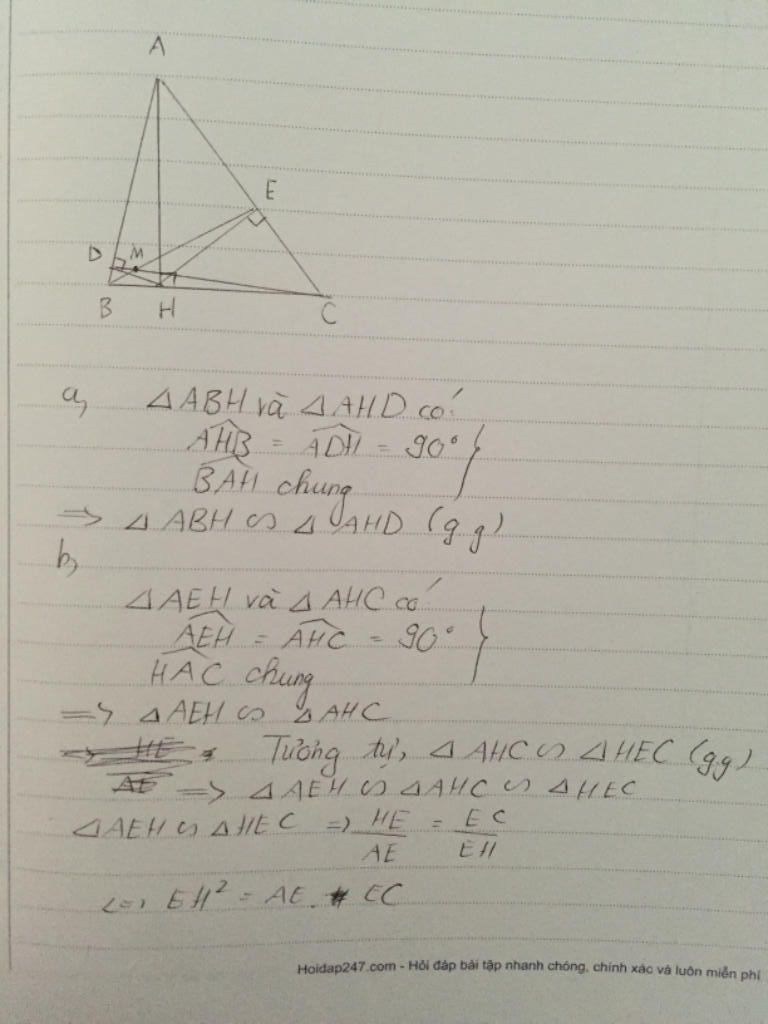 A
E
D M
B H C
a, △ABH và △AHD có:
AHB = ADH = 90° }
BAH chung
=> △ ABH ∽ △ AHD (g g)
b,
△AEH và △AHC có:
AEH = AHC = 90° }
HAC chung
=> △AEH ∽ △AHC
Tương tự, △ AHC ∽ △HEC (gg)
=> △AEH ∽ △AHC ∽ △HEC
△AEH ∽ △HEC => HE/AE = EC/EH
<=> EH² = AE. EC
Hoidap247.com - Hỏi đáp bài tập nhanh chóng, chính xác và luôn miễn phí